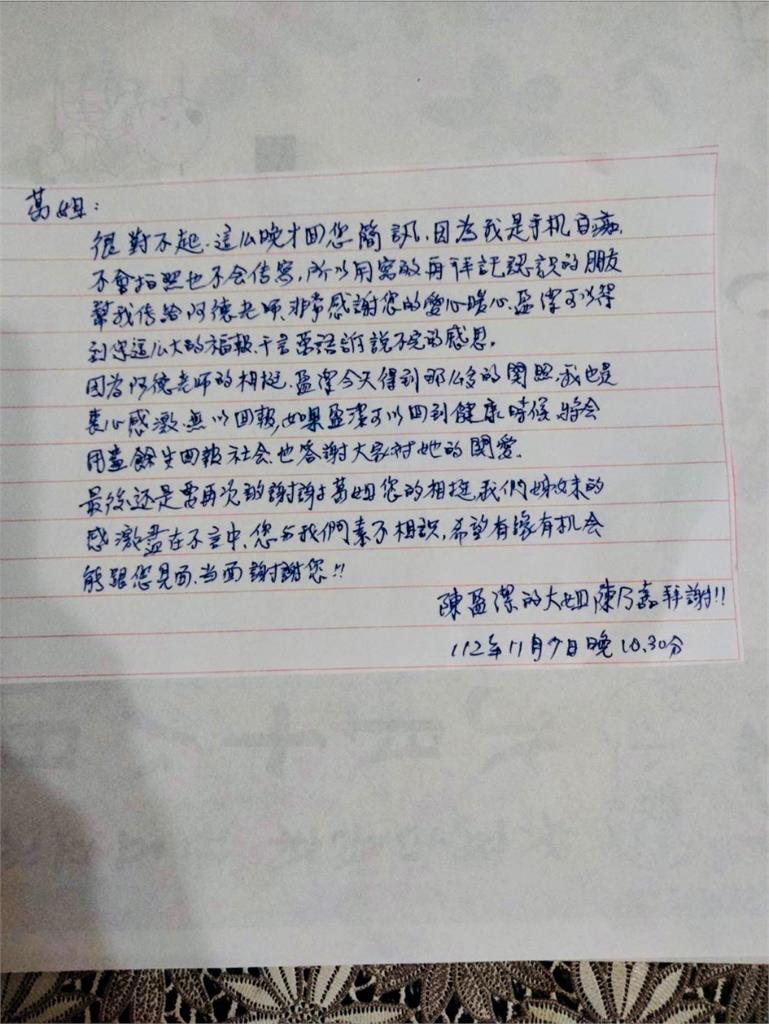 葛姐：
很對不起．這么晚才回您簡訊．因為我是手机白痴．
不會拍照也不会传寄，所以用寫的再拜託認識的朋友
幫我传給阿德老师．非常感謝您的愛心暖心．盈潔可以得
到您這么大的福報．千言萬語訴說不完的感恩．
因為阿德老师的相挺．盈潔今天得到那么多的関照．我也是
衷心感激．無以回報，如果盈潔可以回到健康時候．將会
用盡餘生回報社会．也答謝大家对她的関愛．
最後还是需再次的謝謝葛姐您的相挺．我們姊妹的
感激盡在不言中．您与我們素不相識，希望有缘有机会
能跟您見面．当面謝謝您!!
陳盈潔的大姐陳乃嘉拜謝!!
112年11月9日晚10.30分